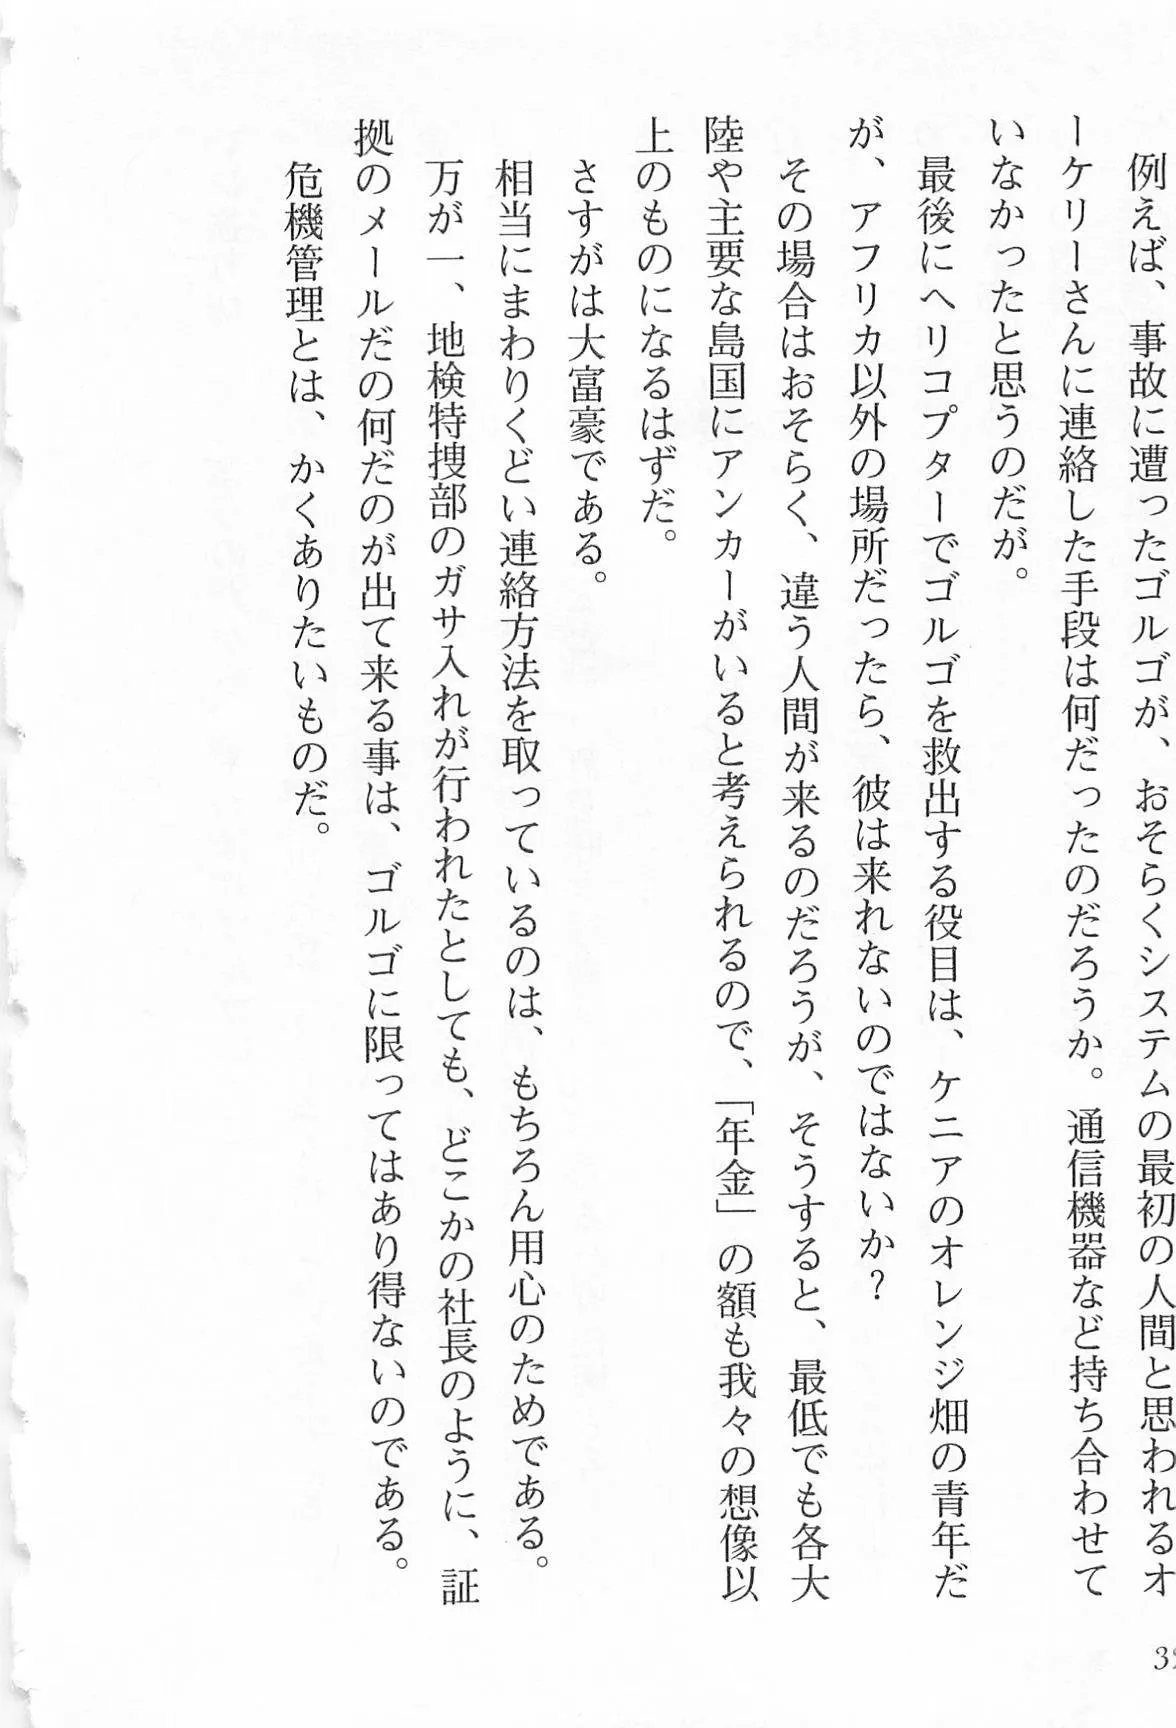 例えば、事故に遭ったゴルゴが、おそらくシステムの最初の人間と思われるオ
ーケリーさんに連絡した手段は何だったのだろうか。通信機器など持ち合わせて
いなかったと思うのだが。
最後にヘリコプターでゴルゴを救出する役目は、ケニアのオレンジ畑の青年だ
が、アフリカ以外の場所だったら、彼は来れないのではないか？
その場合はおそらく、違う人間が来るのだろうが、そうすると、最低でも各大
陸や主要な島国にアンカーがいると考えられるので、「年金」の額も我々の想像以
上のものになるはずだ。
さすがは大富豪である。
相当にまわりくどい連絡方法を取っているのは、もちろん用心のためである。
万が一、地検特捜部のガサ入れが行われたとしても、どこかの社長のように、証
拠のメールだの何だのが出て来る事は、ゴルゴに限ってはあり得ないのである。
危機管理とは、かくありたいものだ。